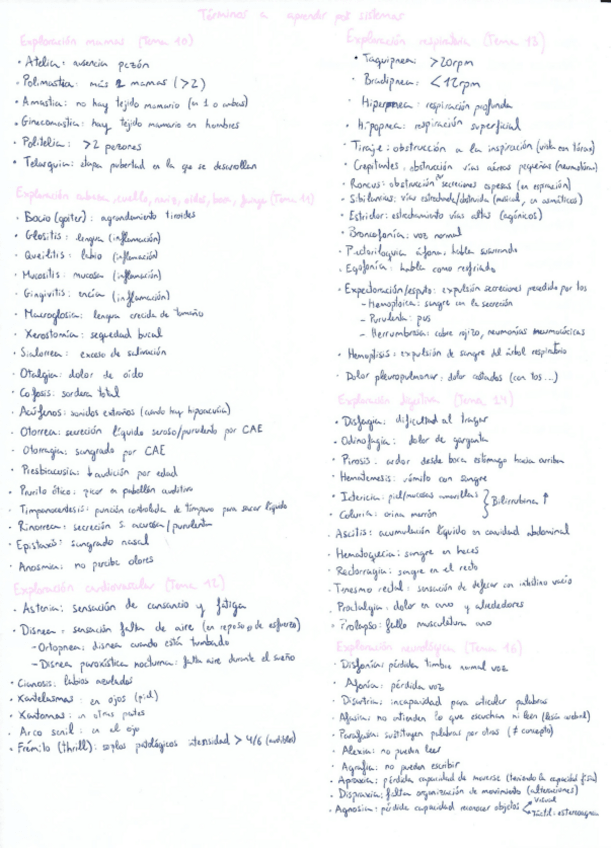 Términos a aprender por sistemas
Exploración mamas (Tema 10)
· Atelia: ausencia pezón
· Polimastia: más 2 mamas (>2)
· Amastia: no hay tejido mamario (en 1 o ambas)
· Ginecomastia: hay tejido mamario en hombres
· Politelia: >2 pezones
· Telarquia: etapa pubertad en la que se desarrollan
Exploración cabeza, cuello, nariz, oídos, boca, faringe (Tema 11)
· Bocio (goiter): agrandamiento tiroides
· Glositis: lengua (inflamación)
· Queilitis: labio (inflamación)
· Mucositis: mucosa (inflamación)
· Gingivitis: encía (inflamación)
· Macroglosia: lengua crecida de tamaño
· Xerostomía: sequedad bucal
· Sialorrea: exceso de salivación
· Otalgia: dolor de oído
· Cofosis: sordera total
· Acúfenos: sonidos extraños (cuando hay hipoacusia)
· Otorrea: secreción líquido seroso/purulento por CAE
· Otorragia: sangrado por CAE
· Presbiacusia: ↓ audición por edad
· Prurito ótico: picor en pabellón auditivo
· Timpanocentesis: punción controlada de tímpano para sacar líquido
· Rinorrea: secreción s. acuosa/purulenta
· Epistaxis: sangrado nasal
· Anosmia: no percibe olores
Exploración cardiovascular (Tema 12)
· Astenia: sensación de cansancio y fatiga
· Disnea: sensación falta de aire (en reposo o de esfuerzo)
- Ortopnea: disnea cuando está tumbado
- Disnea paroxística nocturna: falta aire durante el sueño
· Cianosis: labios azulados
· Xantelasmas: en ojos (piel)
· Xantomas: en otras partes
· Arco senil: en el ojo
· Frémito (thrill): soplos patológicos intensidad > 4/6 (audibles)
Exploración respiratoria (Tema 13)
· Taquipnea: >20rpm
· Bradipnea: <12rpm
· Hiperpnea: respiración profunda
· Hipopnea: respiración superficial
· Tiraje: obstrucción a la inspiración (vista en tórax)
· Crepitantes: obstrucción vías aéreas pequeñas (neumotórax)
· Roncus: obstrucción secreciones espesas (en espiración)
· Sibilancias: vías estrechada/obstruida (musical, en asmáticos)
· Estridor: estrechamiento vías altas (agónicos)
· Broncofonía: voz normal
· Pectoriloquia áfona: habla susurrando
· Egofonía: habla como resfriado
· Expectoración/esputo: expulsión secreciones precedido por tos
- Hemoptoica: sangre en la secreción
- Purulenta: pus
- Herrumbrosa: cobre rojizo, neumonías neumocócicas
· Hemoptisis: expulsión de sangre del árbol respiratorio
· Dolor pleuropulmonar: dolor costados (con tos...)
Exploración digestiva (Tema 14)
· Disfagia: dificultad al tragar
· Odinofagia: dolor de garganta
· Pirosis: ardor desde boca estómago hacia arriba
· Hematemesis: vómito con sangre
· Ictericia: piel/mucosas amarillas } Bilirrubina ↑
· Coluria: orina marrón
· Ascitis: acumulación líquido en cavidad abdominal
· Hematoquecia: sangre en heces
· Rectorragia: sangre en el recto
· Tenesmo rectal: sensación de defecar con intestino vacío
· Proctalgia: dolor en ano y alrededores
· Prolapso: fallo musculatura ano
Exploración neurológica (Tema 16)
· Disfonía: pérdida timbre normal voz
· Afonía: pérdida voz
· Disartria: incapacidad para articular palabras
· Afasia: no entienden lo que escuchan ni leen (lesión cerebral)
· Parafasia: sustituyen palabras por otras (≠ concepto)
· Alexia: no pueden leer
· Agrafia: no pueden escribir
· Apraxia: pérdida capacidad de moverse (teniendo la capacidad física)
· Dispraxia: faltan organización de movimiento (alteraciones)
· Agnosia: pérdida capacidad reconocer objetos
Visual
Táctil: estereoagnosia